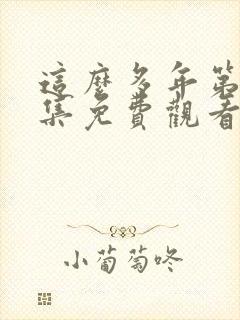 這麼多年第
集免費觀看
小葡萄咚